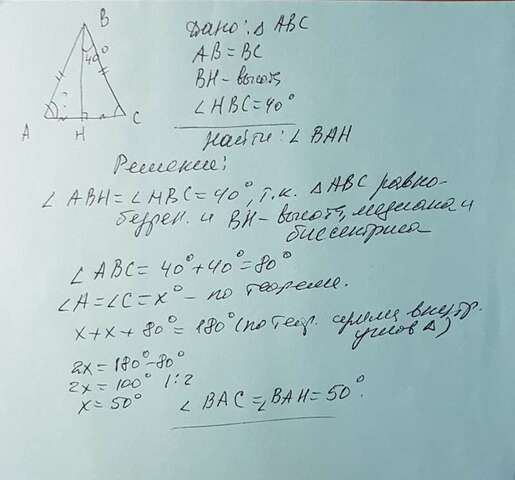 B
40°
A
H
C
Дано: Δ ABC
AB = BC
BH – высота
∠ HBC = 40°
Найти: ∠ BAH
Решение:
∠ ABH = ∠ HBC = 40°, т.к. Δ ABC равно-
бедрен. и BH – высота, медиана и
биссектриса
∠ ABC = 40° + 40° = 80°
∠A = ∠C = x° – по теореме.
x + x + 80° = 180° (по теор. сумма внутр.
углов Δ)
2x = 180° – 80°
2x = 100° | : 2
x = 50°
∠ BAC = ∠ BAH = 50°.